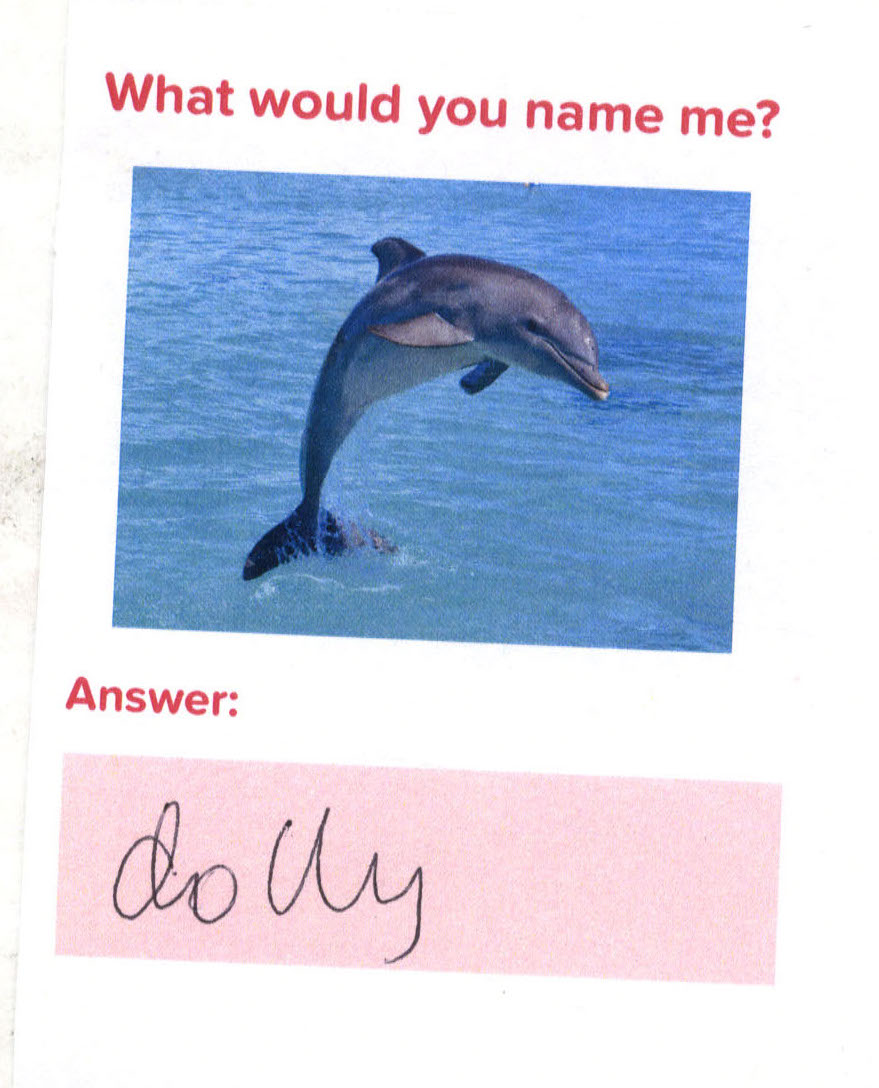 What would you name me?
Answer:
dolly